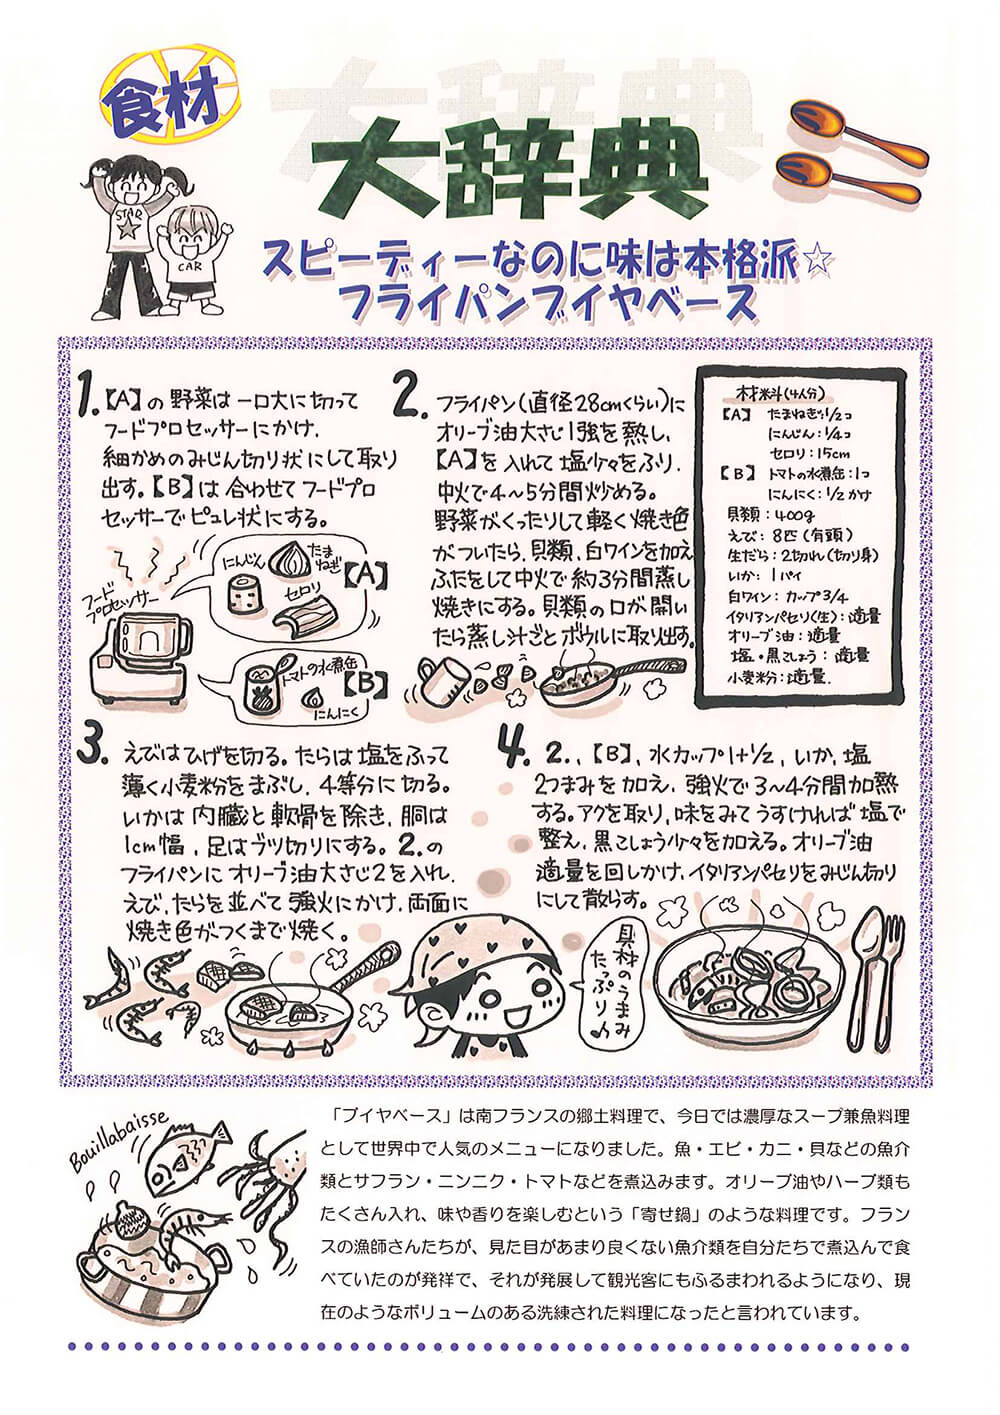 食材
大辞典
STAR
CAR
スピーディーなのに味は本格派☆
フライパンブイヤベース
1.【A】の野菜は一口大に切って
フードプロセッサーにかけ、
細かめのみじん切り状にして取り
出す。【B】は合わせてフードプロ
セッサーでピュレ状にする。
フード
プロセッサー
にんじん
たまねぎ
セロリ
【A】
トマトの水煮缶
にんにく
【B】
2.フライパン(直径28cmくらい)に
オリーブ油大さじ1強を熱し、
【A】を入れて塩少々をふり、
中火で4〜5分間炒める。
野菜がくったりして軽く焼き色
がついたら、貝類、白ワインを加え
ふたをして中火で約3分間蒸し
焼きにする。貝類の口が開い
たら蒸し汁ごとボウルに取り出す。
材料(4人分)
【A】 たまねぎ:1/2コ
にんじん:1/4コ
セロリ:15cm
【B】トマトの水煮缶:1コ
にんにく:1/2かけ
貝類:400g
えび:8匹(有頭)
生だら:2切れ(切り身)
いか:1パイ
白ワイン:カップ3/4
イタリアンパセリ(生):適量
オリーブ油:適量
塩・黒こしょう:適量
小麦粉:適量.
3.えびはひげを切る。たらは塩をふって
薄く小麦粉をまぶし、4等分に切る。
いかは内臓と軟骨を除き、胴は
1cm幅、足はブツ切りにする。2.の
フライパンにオリーブ油大さじ2を入れ、
えび、たらを並べて強火にかけ、両面に
焼き色がつくまで焼く。
4.2.、【B】、水カップ1+1/2、いか、塩
2つまみを加え、強火で3〜4分間加熱
する。アクを取り、味をみてうすければ塩で
整え、黒こしょう少々を加える。オリーブ油
適量を回しかけ、イタリアンパセリをみじん切り
にして散らす。
具材のうまみ
たっぷり♪
Bouillabaisse
「ブイヤベース」は南フランスの郷土料理で、今日では濃厚なスープ兼魚料理
として世界中で人気のメニューになりました。魚・エビ・カニ・貝などの魚介
類とサフラン・ニンニク・トマトなどを煮込みます。オリーブ油やハーブ類も
たくさん入れ、味や香りを楽しむという「寄せ鍋」のような料理です。フラン
スの漁師さんたちが、見た目があまり良くない魚介類を自分たちで煮込んで食
べていたのが発祥で、それが発展して観光客にもふるまわれるようになり、現
在のようなボリュームのある洗練された料理になったと言われています。